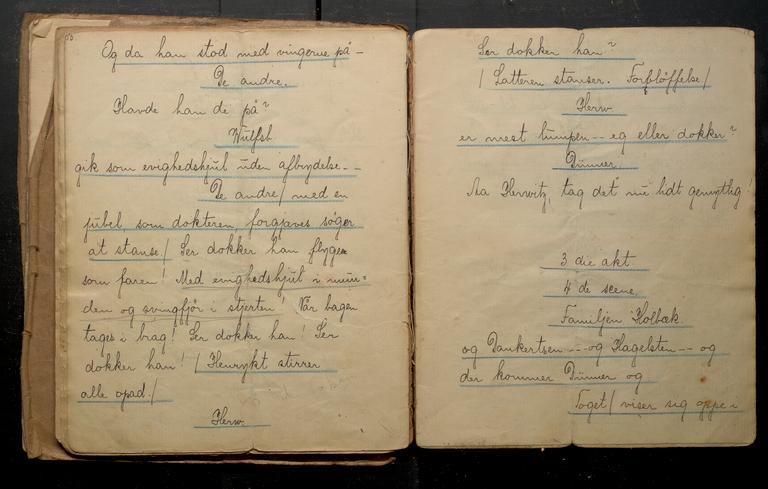 Og da han stod med vingerne på –
De andre.
Havde han de på?
Wulfst.
gik som evighedshjul uden afbrydelse – –
De andre / med en
jubel, som dokteren forgjæves søger
at stanse / Ser dokker han flygen
som faren! Med evighedshjul i mun=
den og svingfjør i stjerten! Vår bagen
tages i brag! Ser dokker han! Ser
dokker han! / Henrykt stirrer
alle opad. /
Herw.
Ser dokker han?
/ Latteren stanser. Forbløffelse /
Herw.
er mest lumpen – – eg eller dokker?
Dünner.
Aa Herwitz, tag det nu lidt gemytlig!
3 die akt.
4 de scene.
Familjen Holbæk.
og Dankertsen – – – og Hagelsten – – og
der kommer Dünner og
Toget / viser sig oppe i